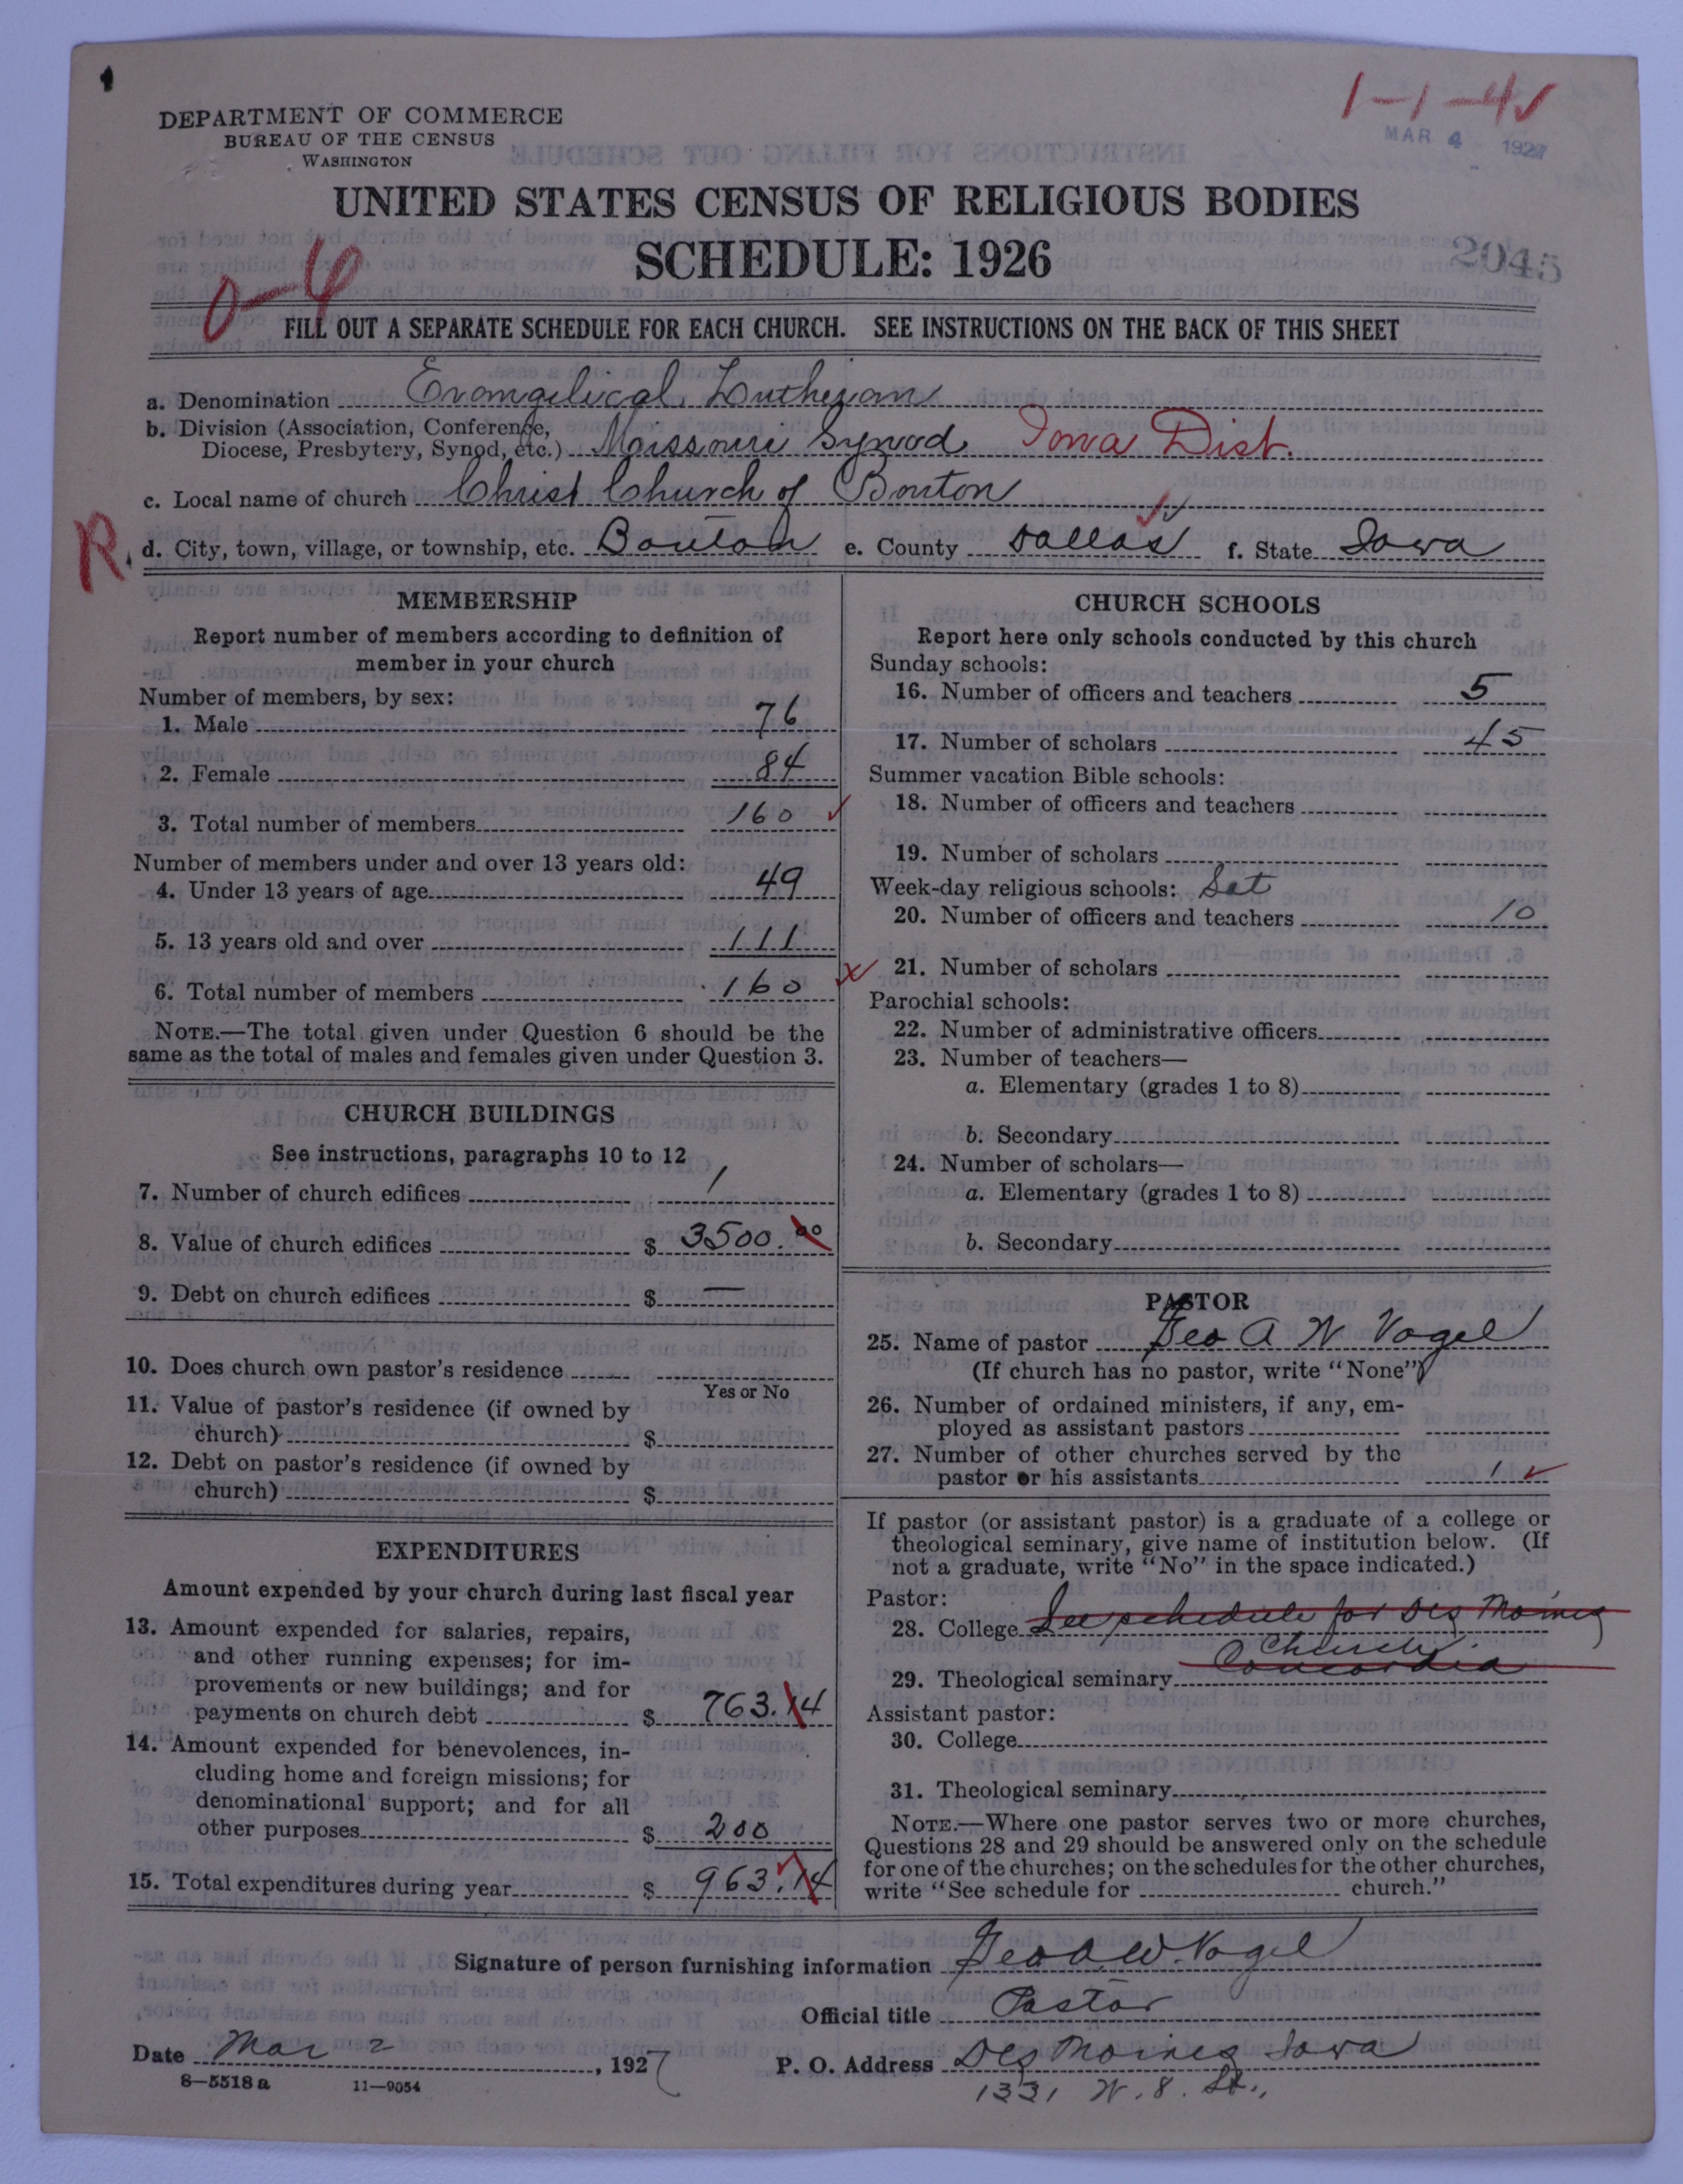 1-1-4
MAR 4 1927
DEPARTMENT OF COMMERCE
BUREAU OF THE CENSUS
WASHINGTON
UNITED STATES CENSUS OF RELIGIOUS BODIES
SCHEDULE: 1926
2045
0-4
FILL OUT A SEPARATE SCHEDULE FOR EACH CHURCH. SEE INSTRUCTIONS ON THE BACK OF THIS SHEET
a. Denomination Evangelical Lutheran
b. Division (Association, Conference,
Diocese, Presbytery, Synod, etc.) Missouri Synod Iowa Dist.
c. Local name of church Christ Church of Bouton
R. d. City, town, village, or township, etc. Bouton e. County Dallas f. State Iowa
MEMBERSHIP
Report number of members according to definition of
member in your church
Number of members, by sex:
1. Male 76
2. Female 84
3. Total number of members 160
Number of members under and over 13 years old:
4. Under 13 years of age 49
5. 13 years old and over 111
6. Total number of members 160
NOTE.—The total given under Question 6 should be the
same as the total of males and females given under Question 3.
CHURCH BUILDINGS
See instructions, paragraphs 10 to 12
7. Number of church edifices 1
8. Value of church edifices $ 3500.00
9. Debt on church edifices $ —
10. Does church own pastor's residence
Yes or No
11. Value of pastor's residence (if owned by
church) $
12. Debt on pastor's residence (if owned by
church) $
EXPENDITURES
Amount expended by your church during last fiscal year
13. Amount expended for salaries, repairs,
and other running expenses; for im-
provements or new buildings; and for
payments on church debt $ 763.14
14. Amount expended for benevolences, in-
cluding home and foreign missions; for
denominational support; and for all
other purposes $ 200
15. Total expenditures during year $ 963.14
CHURCH SCHOOLS
Report here only schools conducted by this church
Sunday schools:
16. Number of officers and teachers 5
17. Number of scholars 45
Summer vacation Bible schools:
18. Number of officers and teachers
19. Number of scholars
Week-day religious schools: Sat
20. Number of officers and teachers 10
21. Number of scholars
Parochial schools:
22. Number of administrative officers
23. Number of teachers—
a. Elementary (grades 1 to 8)
b. Secondary
24. Number of scholars—
a. Elementary (grades 1 to 8)
b. Secondary
PASTOR
25. Name of pastor Geo A W Vogel
(If church has no pastor, write "None")
26. Number of ordained ministers, if any, em-
ployed as assistant pastors
27. Number of other churches served by the
pastor or his assistants 1
If pastor (or assistant pastor) is a graduate of a college or
theological seminary, give name of institution below. (If
not a graduate, write "No" in the space indicated.)
Pastor:
28. College See schedule for Des Moines
Church.
29. Theological seminary Concordia
Assistant pastor:
30. College
31. Theological seminary
NOTE.—Where one pastor serves two or more churches,
Questions 28 and 29 should be answered only on the schedule
for one of the churches; on the schedules for the other churches,
write "See schedule for church."
Signature of person furnishing information Geo A. W. Vogel
Official title Pastor
Date Mar 2, 1927 P. O. Address Des Moines Iowa
8—5518a 11—9054 1331 W. 8. St.,